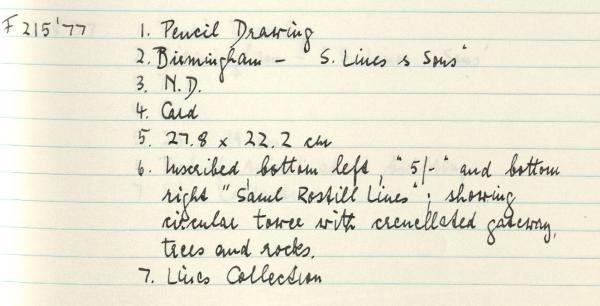 F 215'77 1. Pencil Drawing
2. Birmingham - S. Lines & Sons"
3. N.D.
4. Card
5. 27.8 x 22.2 cm
6. Inscribed, bottom left, "5/-" and bottom
right "Saml Rostill Lines"; showing
circular tower with crenellated gateway,
trees and rocks.
7. Lines Collection